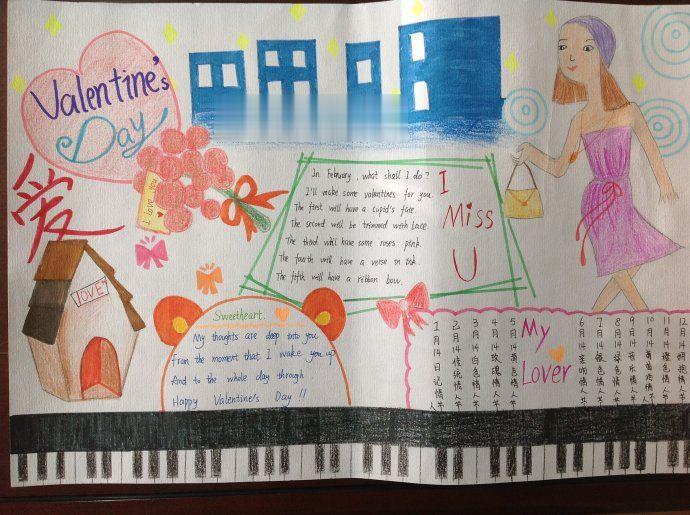 Valentine's
Day
爱
I love you
LOVE
In February, what shall I do?
I'll make some valentines for you.
The first will have a cupid's face.
The second will be trimmed with Lace
The third will have some roses pink.
The fourth will have a verse in ink.
The fifth will have a ribbon bow.
I
Miss
U
Sweetheart.
My thoughts are deep into you
From the moment that I wake you up
And to the whole day through
Happy Valentine's Day !!
1月14日记情人节
2月14传统情人节
3月14白色情人节
4月14玫瑰情人节
5月14黄色情人节
My
Lover
6月14亲吻情人节
7月14银色情人节
8月14绿色情人节
9月14音乐情人节
10月14葡萄酒情人节
11月14橙色情人节
12月14拥抱情人节